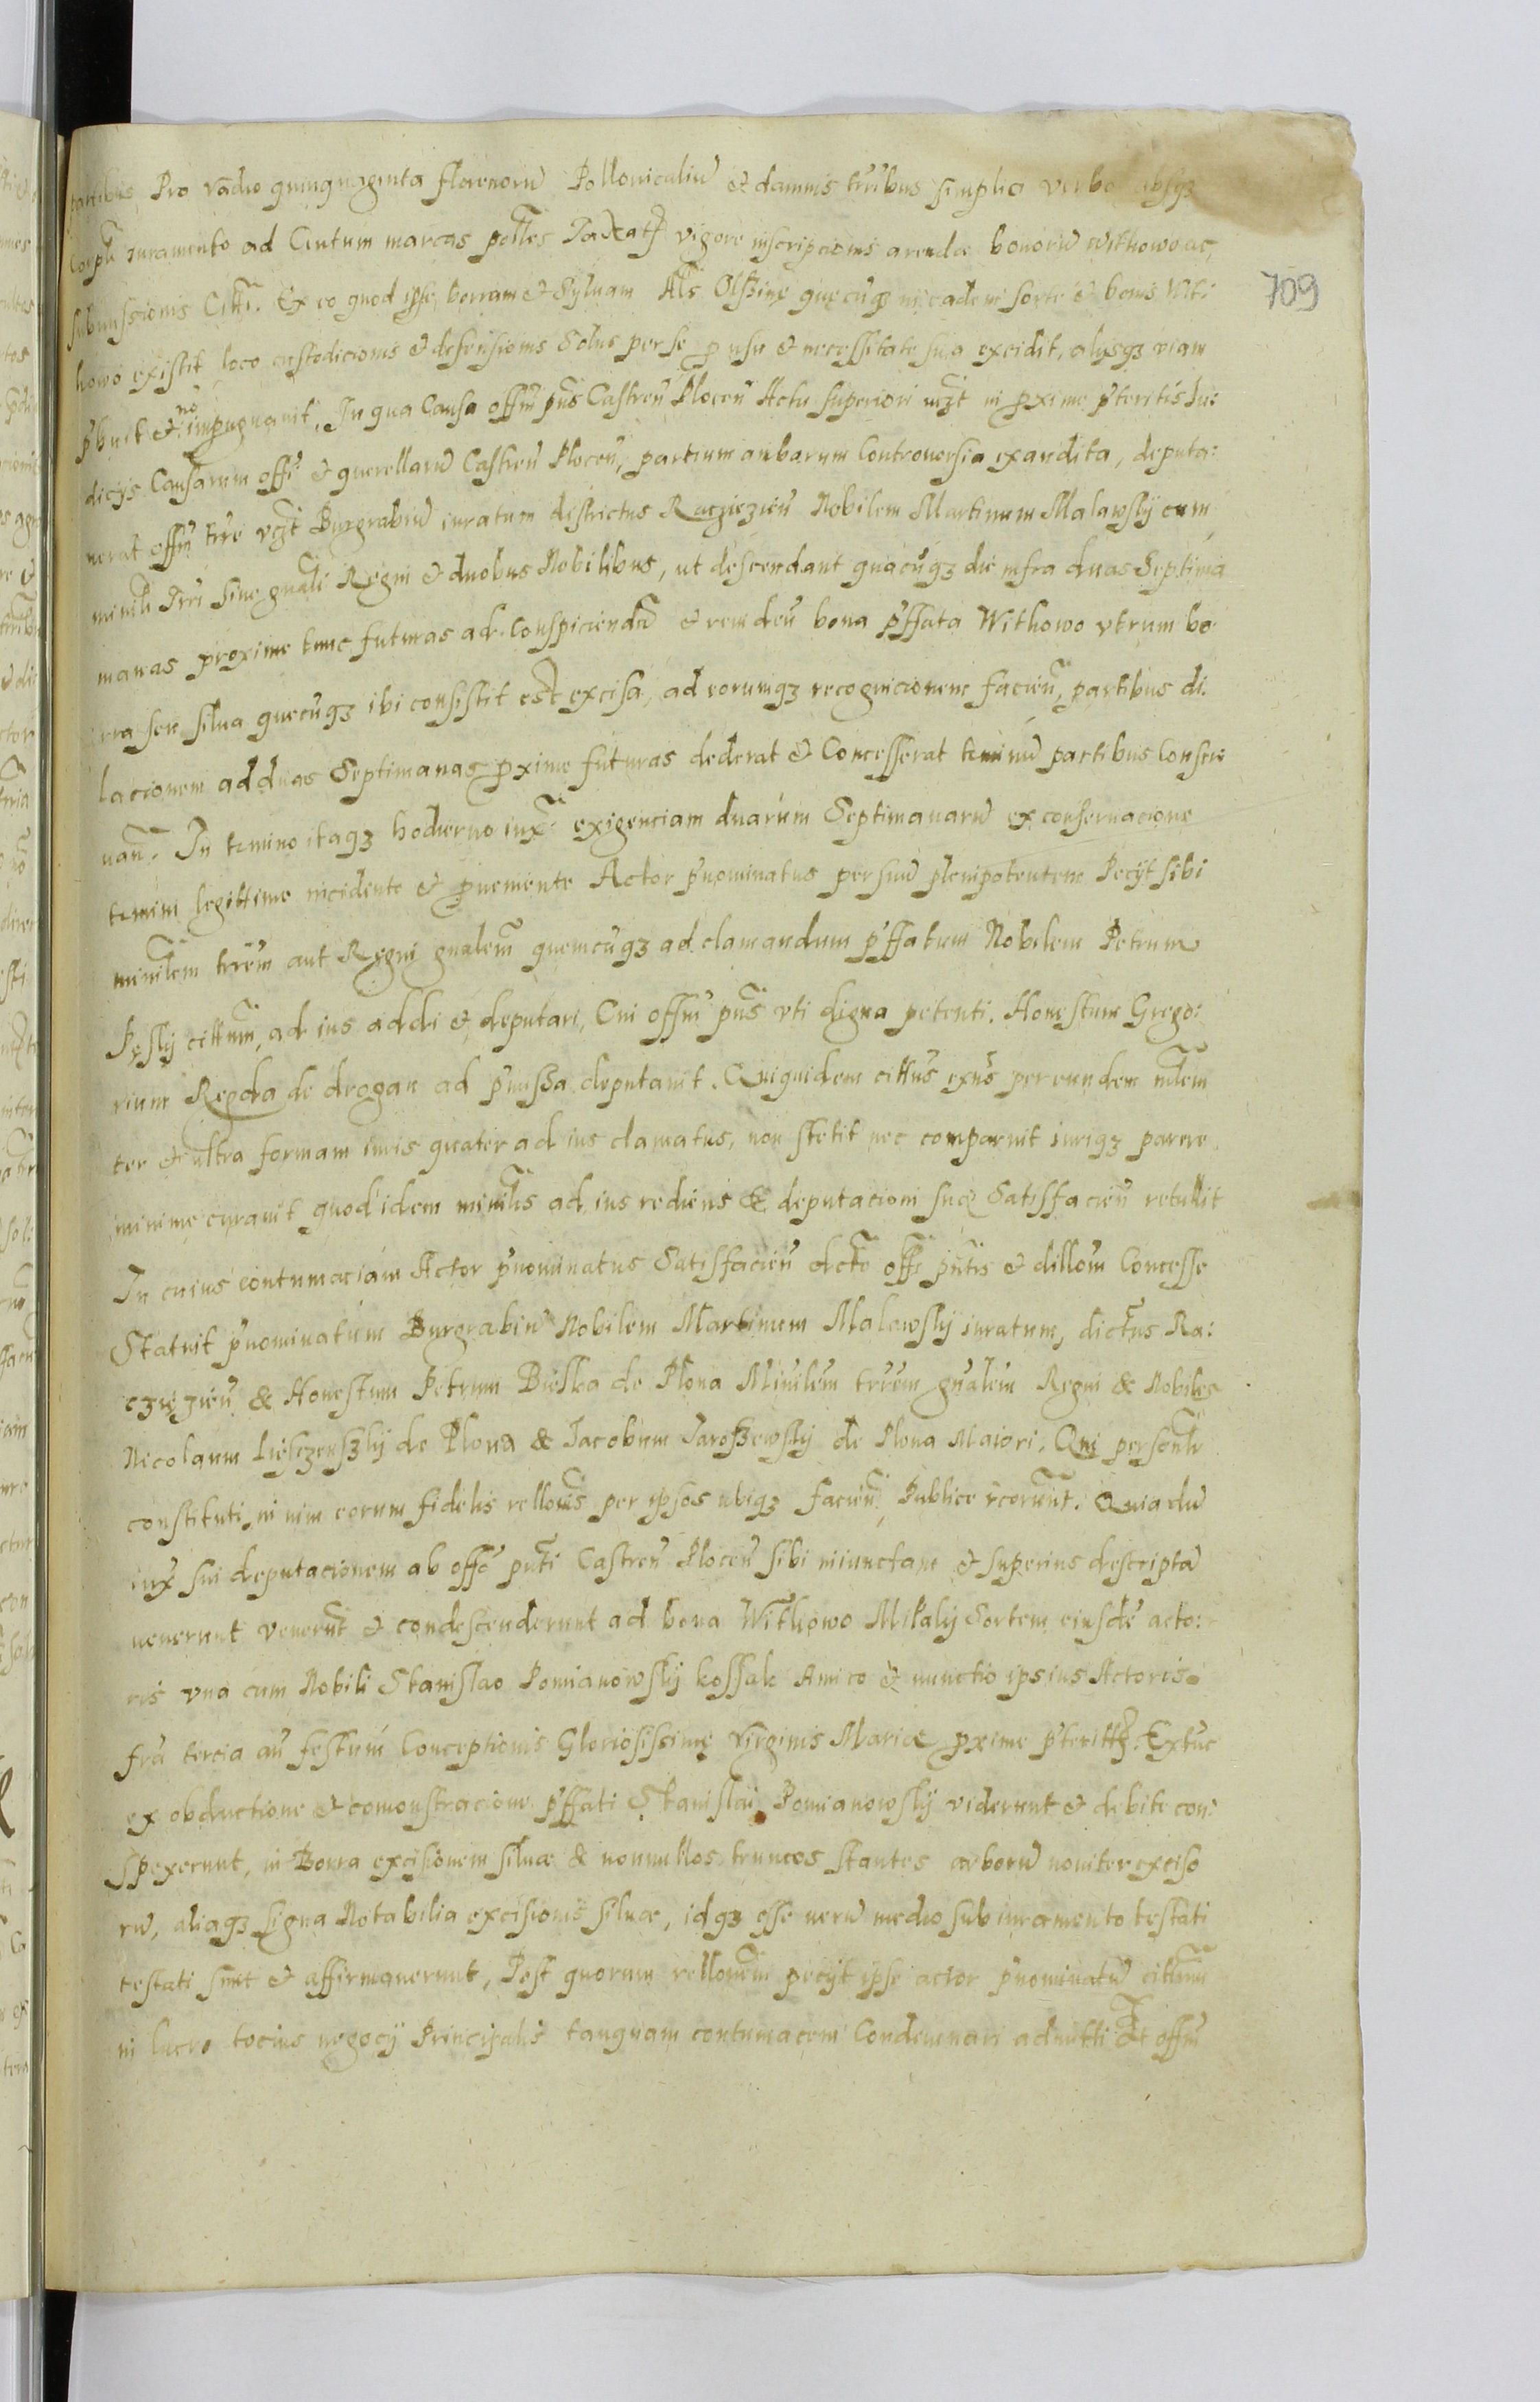 partibus Pro vadio quinquaginta florenorũ Pollonicaliũ & damnis tribus simplici verbo absqʒ
corpli iuramento ad Centum marcas polles Taxatʒ vigore inscripcionis arendæ bonorũ Withowo ac
submissionis Citti. Ex eo quod ipse borram & Syluam Als Olszinę quecũqʒ in eadem sorte & bonis Wit:
howo existit loco custodicionis & defensionis Solus per se p usu & necessitate sua excidit, alijsqʒ viam
p̃buit & nõ impugnauit, In qua Causa offm p̃ns Castren̄ Plocen̄ Actu superiori vczt in pxime p̃teritis Iu:
dicijs Causarum offi & querellarũ Castren̄ Plocen̄, partium ambarum Controuersia exaudita, deputa:
uerat offm trre vczt Burgrabiũ iuratum districtus Raczięzien̄ Nobilem Martinum Malawskÿ cum
minli Trri siue gnali Regni & duobus Nobilibus, ut descendant quacũqʒ die infra duas Septima
manas proxime tunc futuras ad Conspiciendũ & reuiden̄ bona p̃ffata Withowo vtrum bo
rra seu silua quecũqʒ ibi consistit est excisa, ad eorumqʒ recognicionem facien̄, partibus di.
lacionem ad duas Septimanas pxime futuras dederat & Concesserat terminũ partibus conser
uan̄. In termino itaqʒ hodierno iux: exigenciam duarum Septimanarũ ex conseruacione
termini legittime incidente & pueniente Actor p̃nominatus per suũ plenipotentem Pecijt sibi
minlem trrem aut Regni gnalem quemcũqʒ ad clamandum p̃ffatum Nobilem Petrum
Pęskÿ cittum, ad ius addi & deputari, Cui offm p̃ns vti digna petenti. Honestum Grego:
rium Repda de drogan ad p̃missa deputauit. Quiquidem cittus exñs per eundem mlem
ter & ultra formam iuris quater ad ius clamatus, non stetit nec comparuit iuriqʒ parere
minime curauit quod idem minlis ad ius rediens & deputacioni suę Satisfacien̄ retullit
In cuius contumaciam Actor p̃nominatus Satisfacien̄ dcto offi p̃ntis & dillom Concesse
Statuit p̃nominatum Burgrabiũ Nobilem Martinum Malawskÿ iuratum, dictus Ra:
cziezien̄ & Honestum Petrum Bieska de Plona Minlem trrem gnalem Regni & Nobiles
Nicolaum Liesczenszkÿ de Plona & Jacobum Jaroszewskÿ de Plona Maiori. Qui personlr
constituti, in vim eorum fidelis rellonis per ipsos ubiqʒ facien̄, Publice rcorunt. Quia dũ
iux sui deputacionem ab offo p̃nti Castren̄ Plocen̄ sibi iniunctam & superius descriptã
uenerunt venerunt & condescenderunt ad bona Withowo Mikalÿ Sortem eiusdẽ acto:
ris vna cum Nobili Stanislao Pomianowskÿ kossak Amico & nunctio ipsius Actoris
fria tercia an̄ festum Conceptionis Gloriosissimę Virginis Mariæ pxime p̃terittʒ. Extũc
ex obductione & comonstracione p̃ffati Stanislai Pomianowskÿ viderunt & debite con
spexerunt, in Borra excisionem siluæ & nonnullos truncos stantes arborũ nouiter exciso
rũ, aliaqʒ signa Notabilia excisionis siluæ, idqʒ esse uerũ medio sub iuramento testati
testati sunt & affirmauerunt, Post quorum rellonem pecijt ipse actor p̃nominatũ cittum
in lucro tocius negocij Principalis tanquam contumacem Condemnari admitti Et offm
709